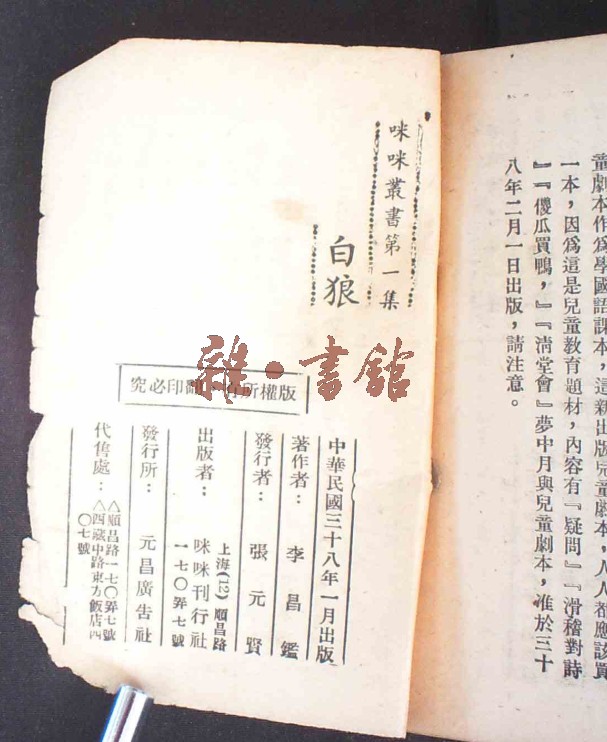 童劇本作爲學國語課本，這新出版兒童劇本，人人都應該買
一本，因爲這是兒童教育題材，內容有『疑問』『滑稽對詩
』『傻瓜買鴨，』『淸堂會』夢中月與兒童劇本，准於三十
八年二月一日出版，請注意。
咪咪叢書第一集
白狼
版權所有・翻印必究
中華民國三十八年一月出版
著作者：李昌鑑
發行者：張元賢
出版者：咪咪刊行社
上海(12)順昌路
一七〇弄七號
發行所：元昌廣告社
代售處：
△順昌路一七〇弄七號
△西藏中路東方飯店四
〇七號
雜・書館